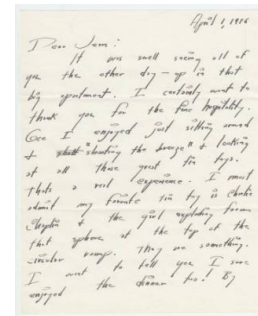 April 1, 1986
Dear Jim:
It was swell seeing all of
you the other day - up in that
big apartment. I certainly want to
thank you for the fine hospitality.
Gee I enjoyed just sitting around
& "shooting the breeze" & looking
at all those great tin toys.
Thats a real experience. I must
admit my favorite tin toy is Charlie
Chaplin & the girl exploding from
that sphere at the top of the
circular ramp. They are something.
I want to tell you I sure
enjoyed the dinner too! By